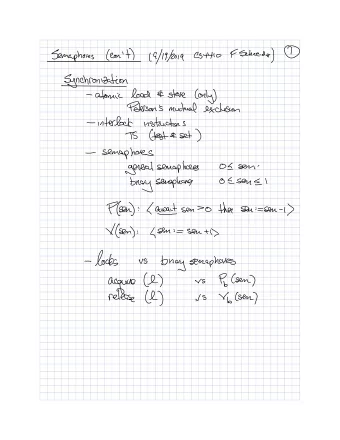 Semaphores (con't) (9/19/2019 CS4410 F Schneider) 1
Synchronization
- atomic load & store (only)
Peterson's mutual exclusion
- interlock instructions
TS (test & set)
- semaphores
general semaphores 0 ≤ sem
binary semaphore 0 ≤ sem ≤ 1
P(sem): <await sem > 0 then sem := sem - 1>
V(sem): <sem := sem + 1>
- locks vs binary semaphores
acquire (l) vs P_b (sem)
release (l) vs V_b (sem)